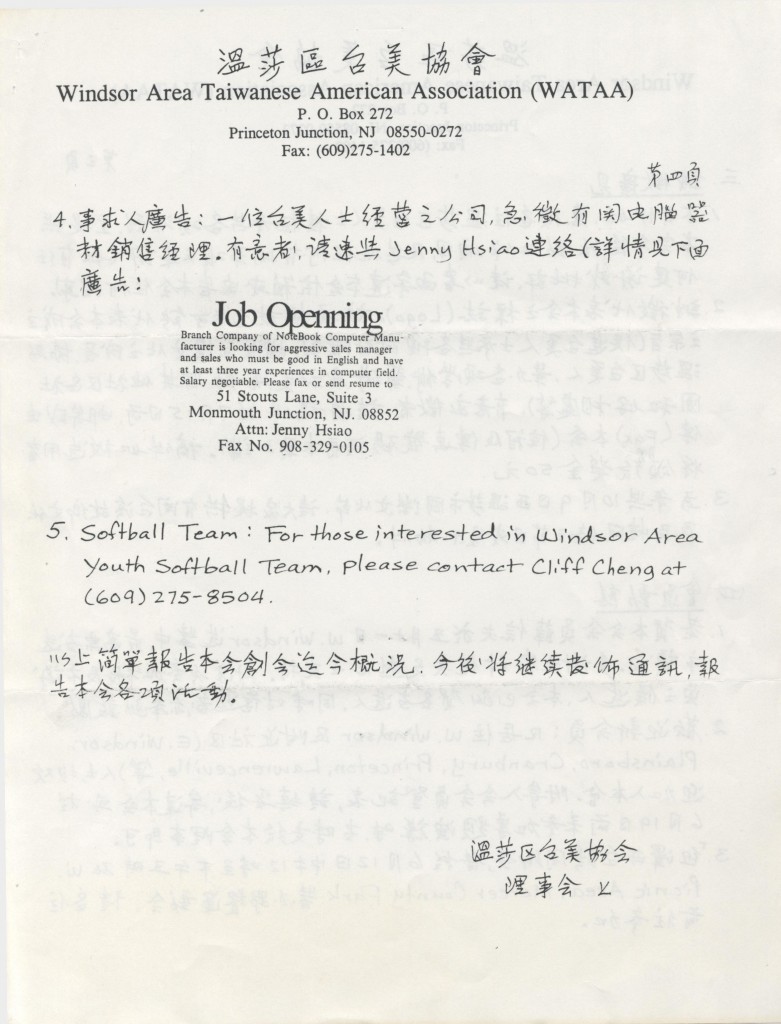 溫莎區台美協會
Windsor Area Taiwanese American Association (WATAA)
P. O. Box 272
Princeton Junction, NJ 08550-0272
Fax: (609)275-1402
第四頁
4. 事求人廣告: 一位台美人士經營之公司, 急徵有関电脑器
材銷售經理。有意者, 请速与 Jenny Hsiao 連絡 (詳情見下面
廣告:
Job Openning
Branch Company of NoteBook Computer Manu-
facturer is looking for aggressive sales manager
and sales who must be good in English and have
at least three year experiences in computer field.
Salary negotiable. Please fax or send resume to
51 Stouts Lane, Suite 3
Monmouth Junction, NJ. 08852
Attn: Jenny Hsiao
Fax No. 908-329-0105
5. Softball Team : For those interested in Windsor Area
Youth Softball Team, Please contact Cliff Cheng at
(609) 275-8504.
以上简單報告本会創会迄今概況. 今後将继续发佈通訊, 報
告本会各項活动。
溫莎区台美协会
理事会 上